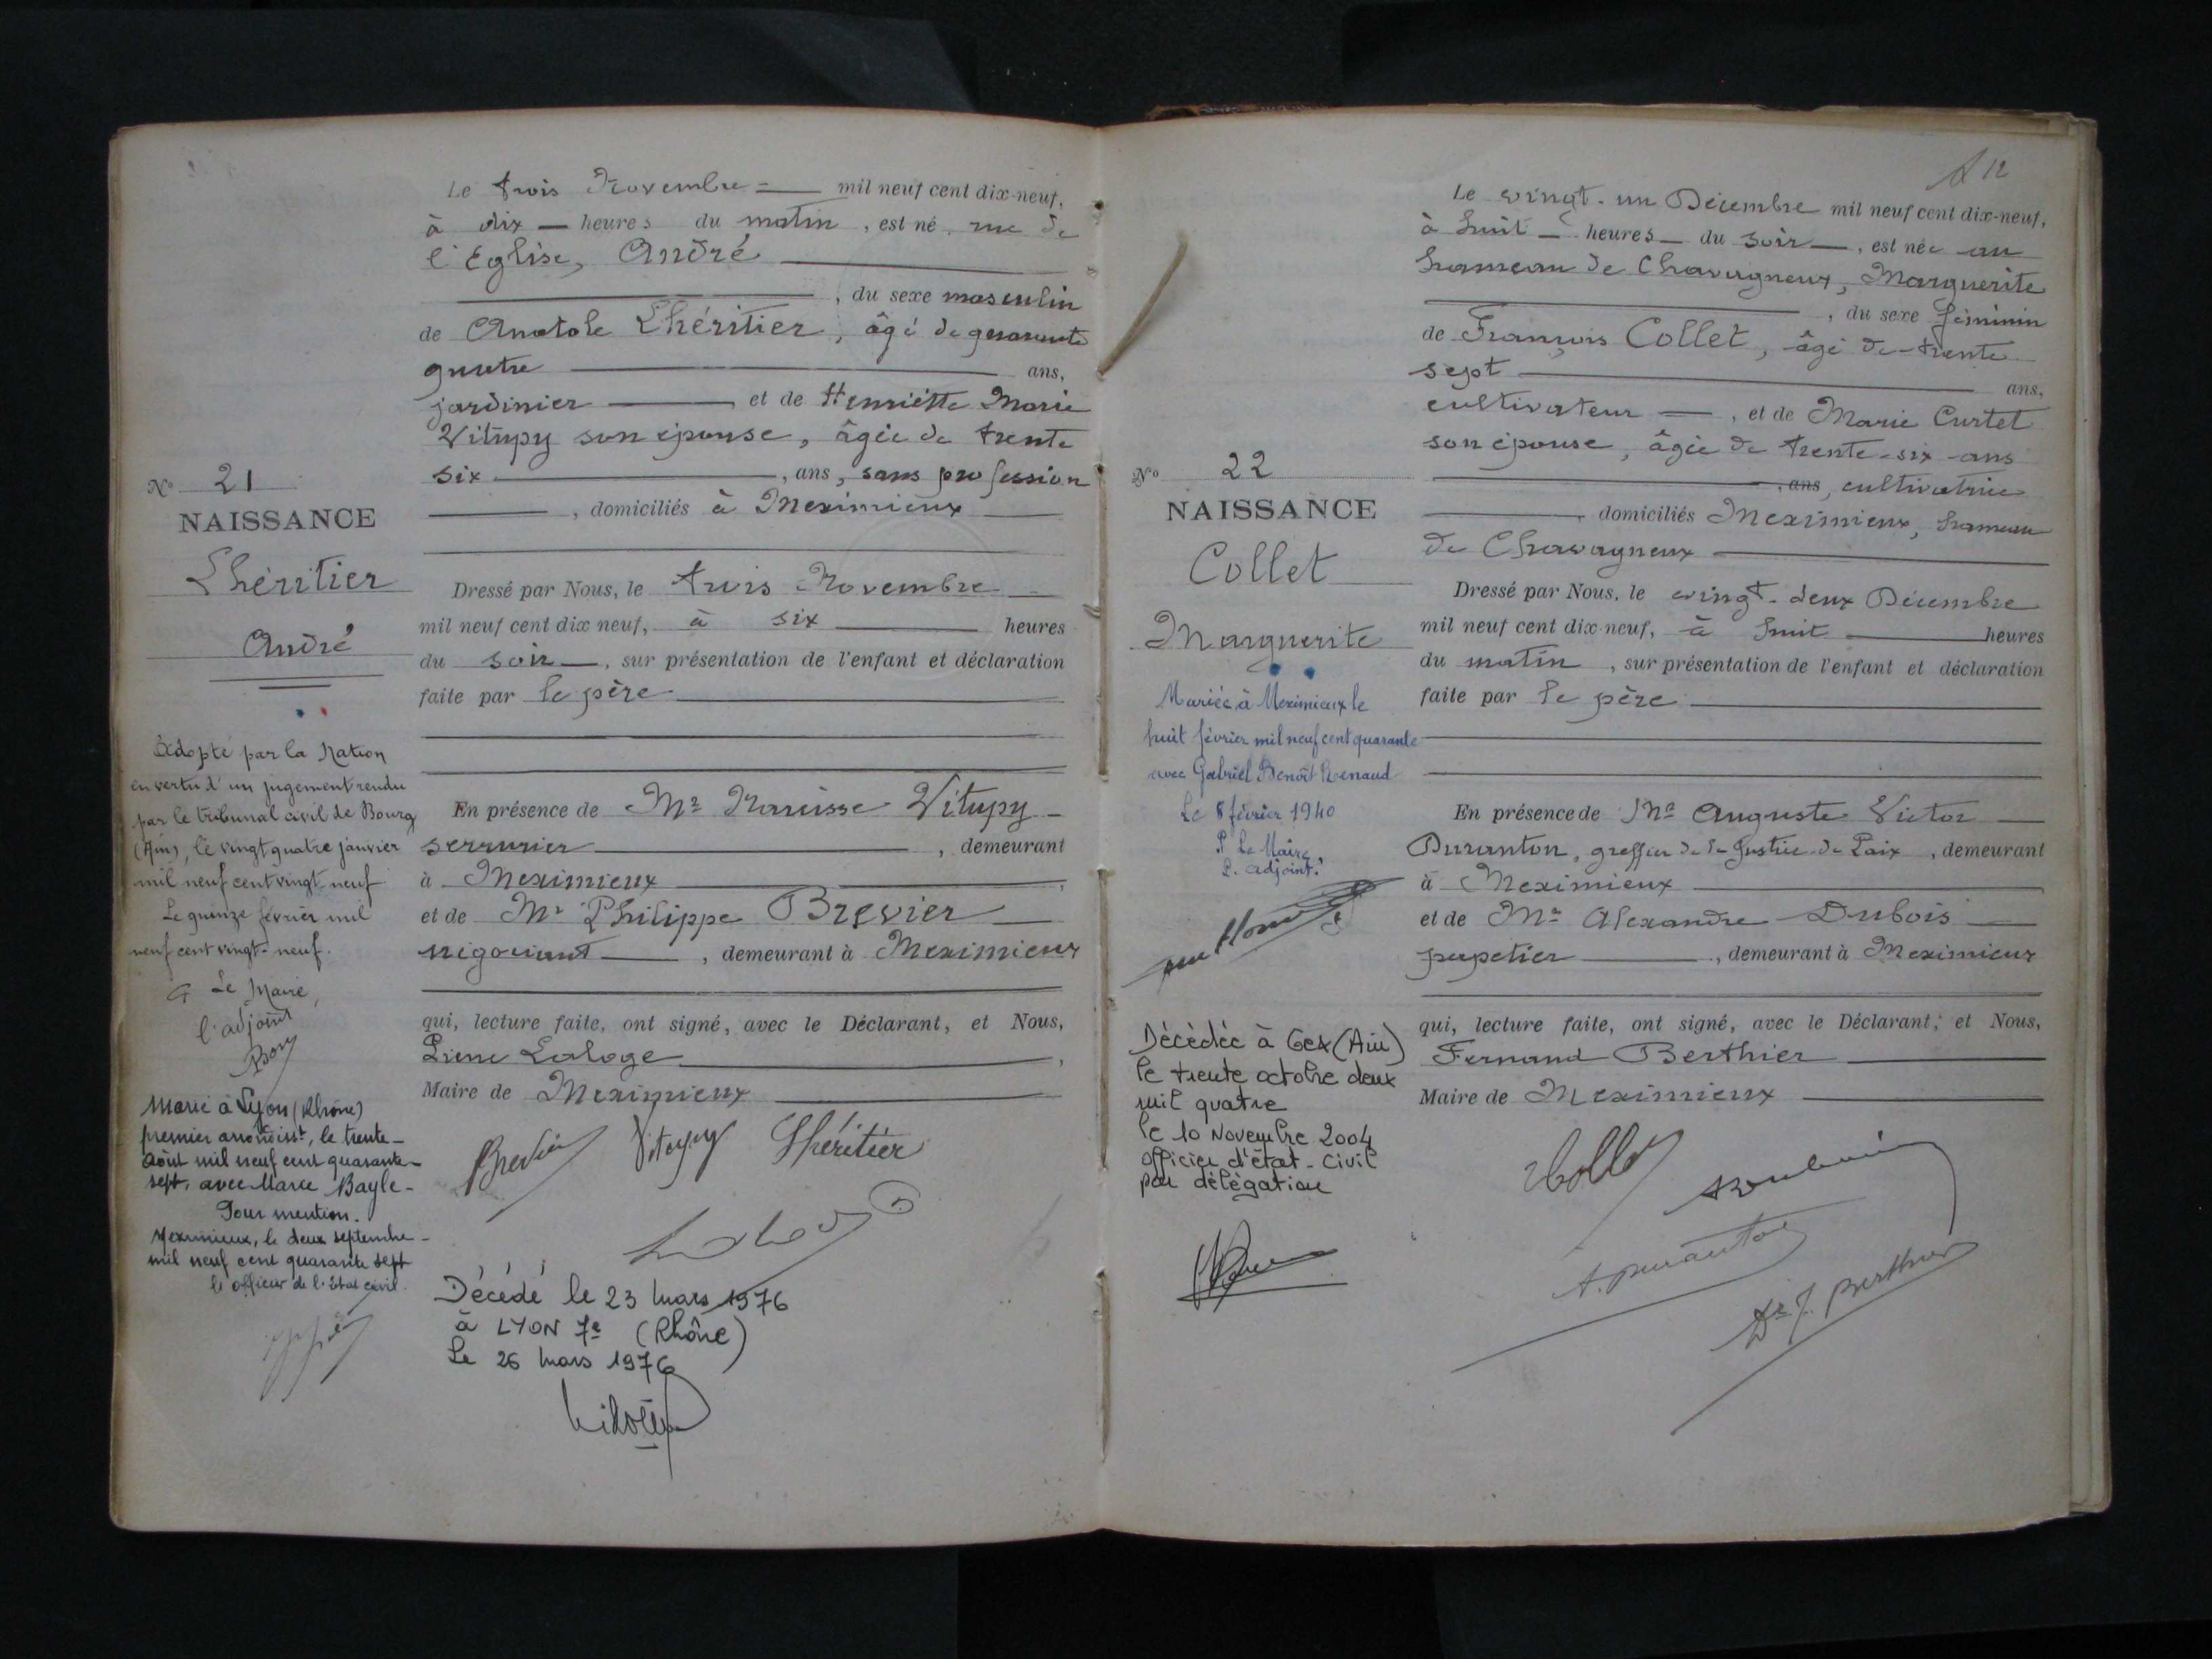 Le trois Novembre mil neuf cent dix-neuf,
à dix heures du matin, est né, rue de
l'Eglise, André
, du sexe masculin
de Anatole Lhéritier, âgé de quarante
quatre ans,
jardinier et de Henriette Marie
Vitupy son épouse, âgée de trente
six, ans, sans profession
, domiciliés à Meximieux
Nº 21
NAISSANCE
Lhéritier
André
Dressé par Nous, le trois Novembre
mil neuf cent dix neuf, à six heures
du soir, sur présentation de l'enfant et déclaration
faite par le père
En présence de Mr Narcisse Vitupy
serrurier, demeurant
à Meximieux,
et de Mr Philippe Brevier
négociant, demeurant à Meximieux
qui, lecture faite, ont signé, avec le Déclarant, et Nous,
Pierre Laloge,
Maire de Meximieux
Brevier Vitupy Lhéritier
Adopté par la Nation
en vertu d'un jugement rendu
par le tribunal civil de Bourg
(Ain), le vingt quatre janvier
mil neuf cent vingt-neuf
Le quinze février mil
neuf cent vingt-neuf.
Le Maire,
l'adjoint
Marié à Lyon (Rhône)
premier arrondisst, le trente
août mil neuf cent quarante-
sept, avec Marie Bayle-
Pour mention.
Meximieux, le deux septembre
mil neuf cent quarante sept
l'officier de l'Etat civil.
Décédé le 23 mars 1976
à LYON 7e (Rhône)
Le 26 mars 1976
12
Le vingt-un Décembre mil neuf cent dix-neuf,
à huit heures du soir, est née au
hameau de Chavagneux, Marguerite
, du sexe féminin
de François Collet, âgé de trente
sept ans,
cultivateur, et de Marie Curtet
son épouse, âgée de trente-six ans
, ans, cultivatrice
, domiciliés Meximieux, hameau
de Chavagneux
Nº 22
NAISSANCE
Collet
Marguerite
Dressé par Nous, le vingt-deux Décembre
mil neuf cent dix-neuf, à huit heures
du matin, sur présentation de l'enfant et déclaration
faite par le père
En présence de Mr Auguste Victor
Duranton, greffier de la Justice de Paix, demeurant
à Meximieux
et de Mr Alexandre Dubois
papetier, demeurant à Meximieux
qui, lecture faite, ont signé, avec le Déclarant, et Nous,
Fernand Berthier
Maire de Meximieux
Collet
A. Duranton
Dr F. Berthier
Mariée à Meximieux le
huit février mil neuf cent quarante
avec Gabriel Benoît Renaud
Le 8 février 1940
P. Le Maire,
L. adjoint.
Décédée à Gex (Ain)
le trente octobre deux
mil quatre
le 10 Novembre 2004
officier d'état-civil
par délégation